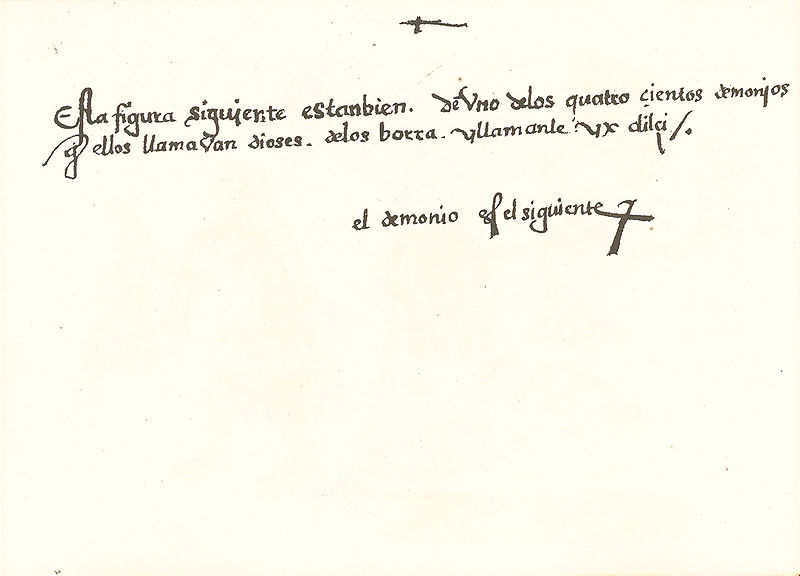 Esta figura siguiente estanbien. de Vno delos quatro çientos demonjos
q ellos llamaVan dioses. delos borra. yllamanle
el demonio es el siguiente